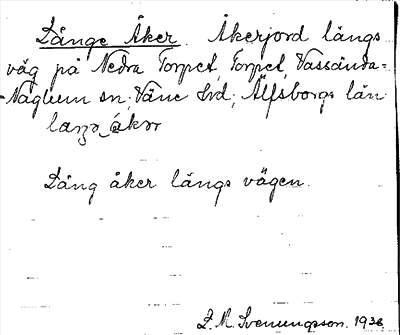 Långe Åker. Åkerjord längs
väg på Nedra Torpet, Torpet, Vassända=
-Naglum sn; Väne hd; Älfsborgs län
Lång åker längs vägen.
L. M. Svenungsson. 1936